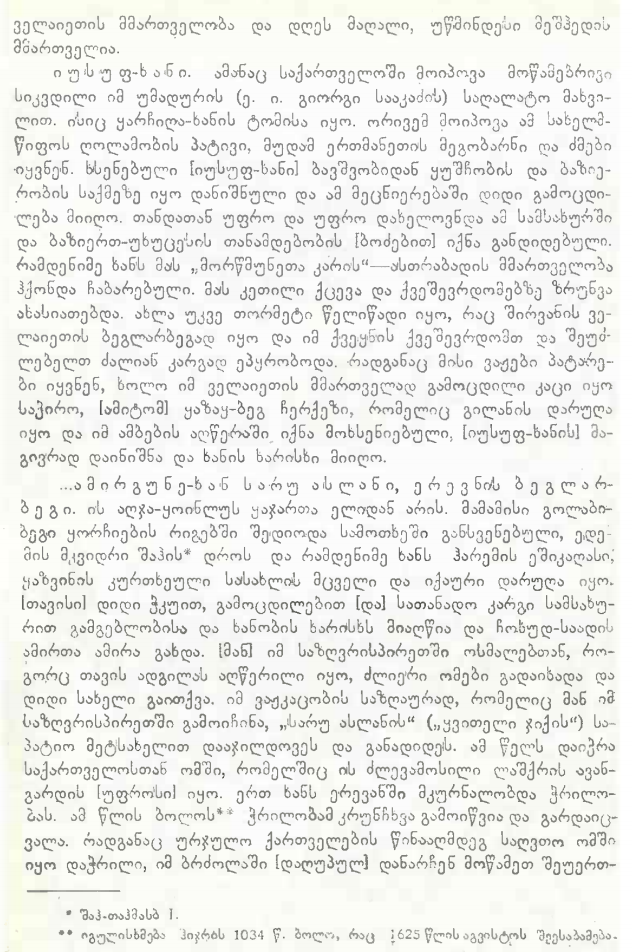 ველაიეთის მმართველობა და დღეს მაღალი, უწმინდესი მეშჰედის
მმართველია.
ი უ ს უ ფ-ხ ა ნ ი. ამანაც საქართველოში მოიპოვა მოწამებრივი
სიკვდილი იმ უმადურის (ე. ი. გიორგი სააკაძის) საღალატო მახვი-
ლით. ისიც ყარჩიღა-ხანის ტომისა იყო. ორივემ მოიპოვა ამ სახელმ-
წიფოს ღოლამობის პატივი, მუდამ ერთმანეთის მეგობარნი და ძმები
იყვნენ. ხსენებული [იუსუფ-ხანი] ბავშვობიდან ყუშჩობის და ბაზიე-
რობის საქმეზე იყო დანიშნული და ამ მეცნიერებაში დიდი გამოცდი-
ლება მიიღო. თანდათან უფრო და უფრო დახელოვნდა ამ სამსახურში
და ბაზიერთ-უხუცესის თანამდებობის [ბოძებით] იქნა განდიდებული.
რამდენიმე ხანს მას „მორწმუნეთა კარის“—ასთრაბადის მმართველობა
ჰქონდა ჩაბარებული. მას კეთილი ქცევა და ქვეშევრდომებზე ზრუნვა
ახასიათებდა. ახლა უკვე თორმეტი წელიწადი იყო, რაც შირვანის ვე-
ლაიეთის ბეგლარბეგად იყო და იმ ქვეყნის ქვეშევრდომთ და შეუძ-
ლებელთ ძალიან კარგად ეპყრობოდა. რადგანაც მისი ვაჟები პატარე-
ბი იყვნენ, ხოლო იმ ველაიეთის მმართველად გამოცდილი კაცი იყო
საჭირო, [ამიტომ] ყაზაყ-ბეგ ჩერქეზი, რომელიც გილანის დარუღა
იყო და იმ ამბების აღწერაში იქნა მოხსენიებული, [იუსუფ-ხანის] მა-
გივრად დაინიშნა და ხანის ხარისხი მიიღო.
...ა მ ი რ გ უ ნ ე-ხ ა ნ ს ა რ უ ა ს ლ ა ნ ი, ე რ ე ვ ნ ი ს ბ ე გ ლ ა რ-
ბ ე გ ი. ის აღჯა-ყოინლუს ყაჯართა ელიდან არის. მამამისი გოლაბი-
ბეგი ყორჩიების რიგებში შედიოდა სამოთხეში განსვენებული, ედე-
მის მკვიდრი შაჰის* დროს და რამდენიმე ხანს ჰარემის ეშიკაღასი,
ყაზვინის კურთხეული სასახლის მცველი და იქაური დარუღა იყო.
[თავისი] დიდი ჭკუით, გამოცდილებით [და] სათანადო კარგი სამსახუ-
რით გამგებლობისა და ხანობის ხარისხს მიაღწია და ჩოხუდ-საადის
ამირთა ამირა გახდა. [მან] იმ საზღვრისპირეთში ოსმალებთან, რო-
გორც თავის ადგილას აღწერილი იყო, ძლიერი ომები გადაიხადა და
დიდი სახელი გაითქვა. იმ ვაჟკაცობის საზღაურად, რომელიც მან იმ
საზღვრისპირეთში გამოიჩინა, „სარუ ასლანის“ („ყვითელი ჯიქის“) სა-
პატიო მეტსახელით დააჯილდოვეს და განადიდეს. ამ წელს დაიჭრა
საქართველოსთან ომში, რომელშიც ის ძლევამოსილი ლაშქრის ავან-
გარდის [უფროსი] იყო. ერთ ხანს ერევანში მკურნალობდა ჭრილო-
ბას. ამ წლის ბოლოს** ჭრილობამ კრუნჩხვა გამოიწვია და გარდაიც-
ვალა. რადგანაც ურჯულო ქართველების წინააღმდეგ საღვთო ომში
იყო დაჭრილი, იმ ბრძოლაში [დაღუპულ] დანარჩენ მოწამეთ შეუერთ-
* შაჰ-თაჰმასბ I.
** იგულისხმება ჰიჯრის 1034 წ. ბოლო, რაც 1625 წლის აგვისტოს შეესაბამება.